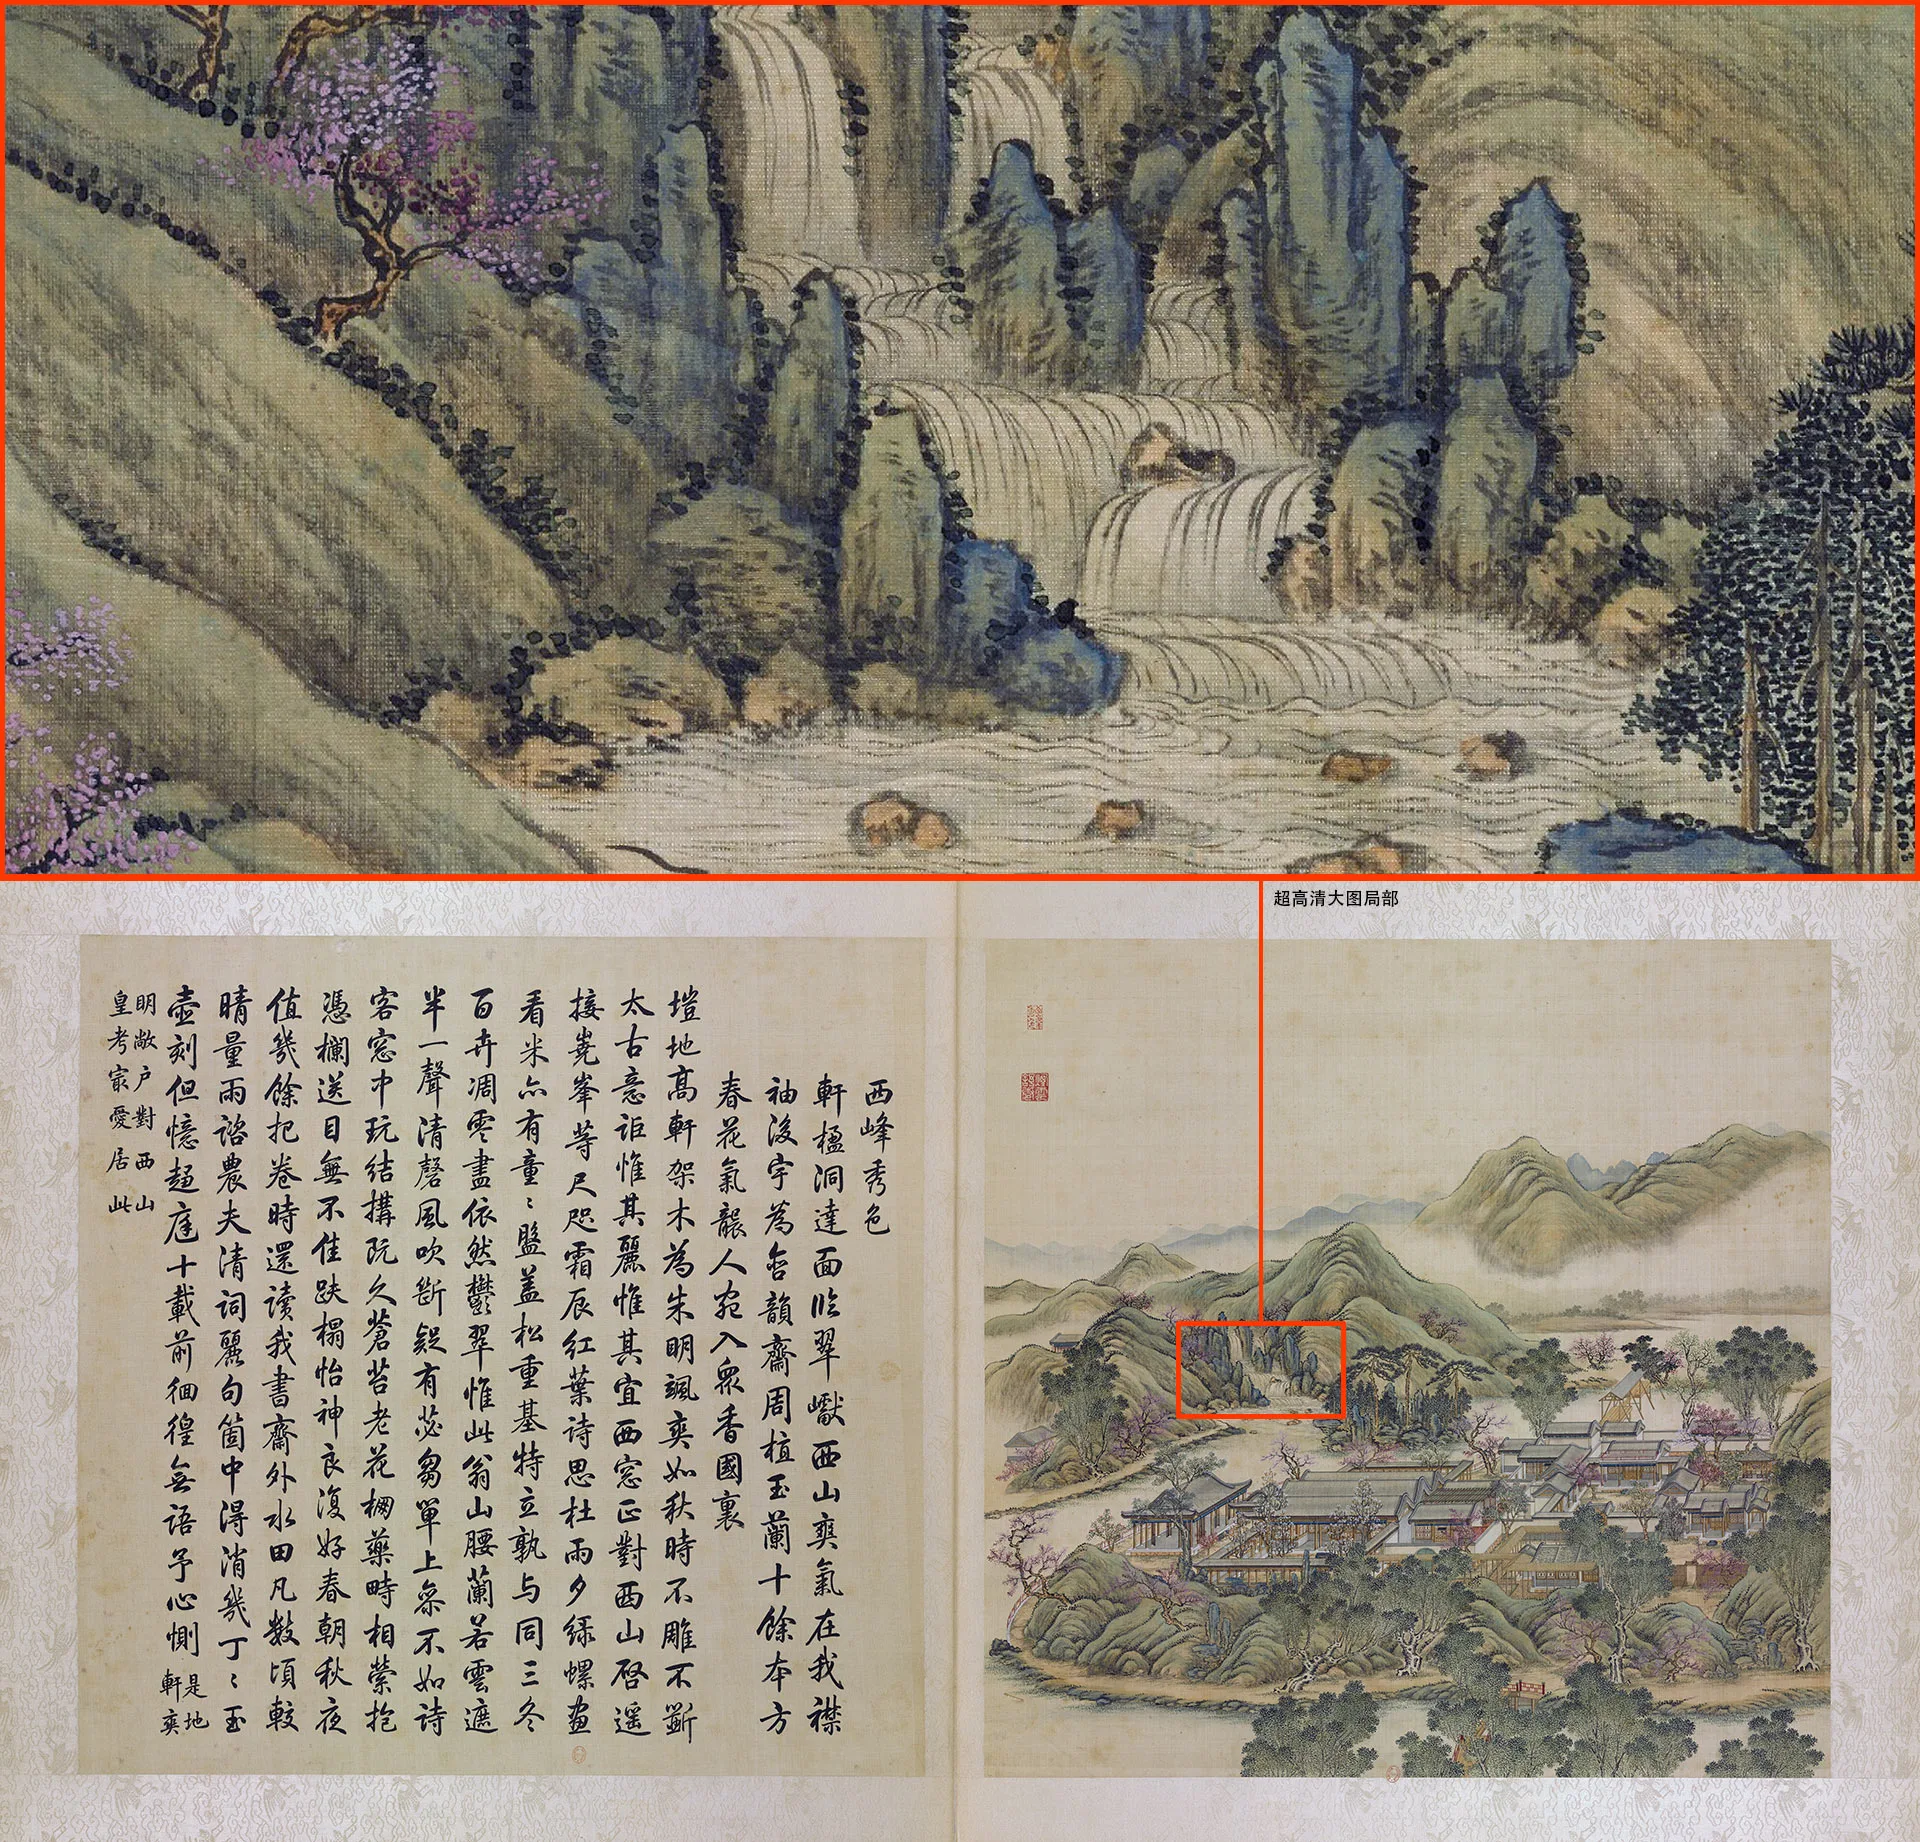 超高清大图局部
西峰秀色
軒楹洞達面臨翠巘西山爽氣在我襟
袖後宇為含韻齋周植玉蘭十餘本方
春花氣襲人宛入眾香國裏
塏地高軒架木為朱明颯爽如秋時不雕不斲
太古意詎惟其麗惟其宜西窓正對西山啓遥
接嶤峯等尺咫霜辰紅葉詩思杜雨夕綠螺畫
看米亦有童童盤盖松重基特立孰与同三冬
百卉凋零盡依然鬱翠惟此翁山腰蘭若雲遮
半一聲清磬風吹斷疑有苾芻單上參不如詩
客窓中玩結搆既久蒼苔老花欄藥畤相縈抱
憑欄送目無不佳趺榻怡神良復好春朝秋夜
值幾餘把卷時還讀我書齋外水田凡數頃較
晴量雨諮農夫清詞麗句箇中得消幾丁丁玉
壺刻但憶趨庭十載前徊徨無語予心惻 是地軒爽
明敞户對西山
皇考宸愛居此